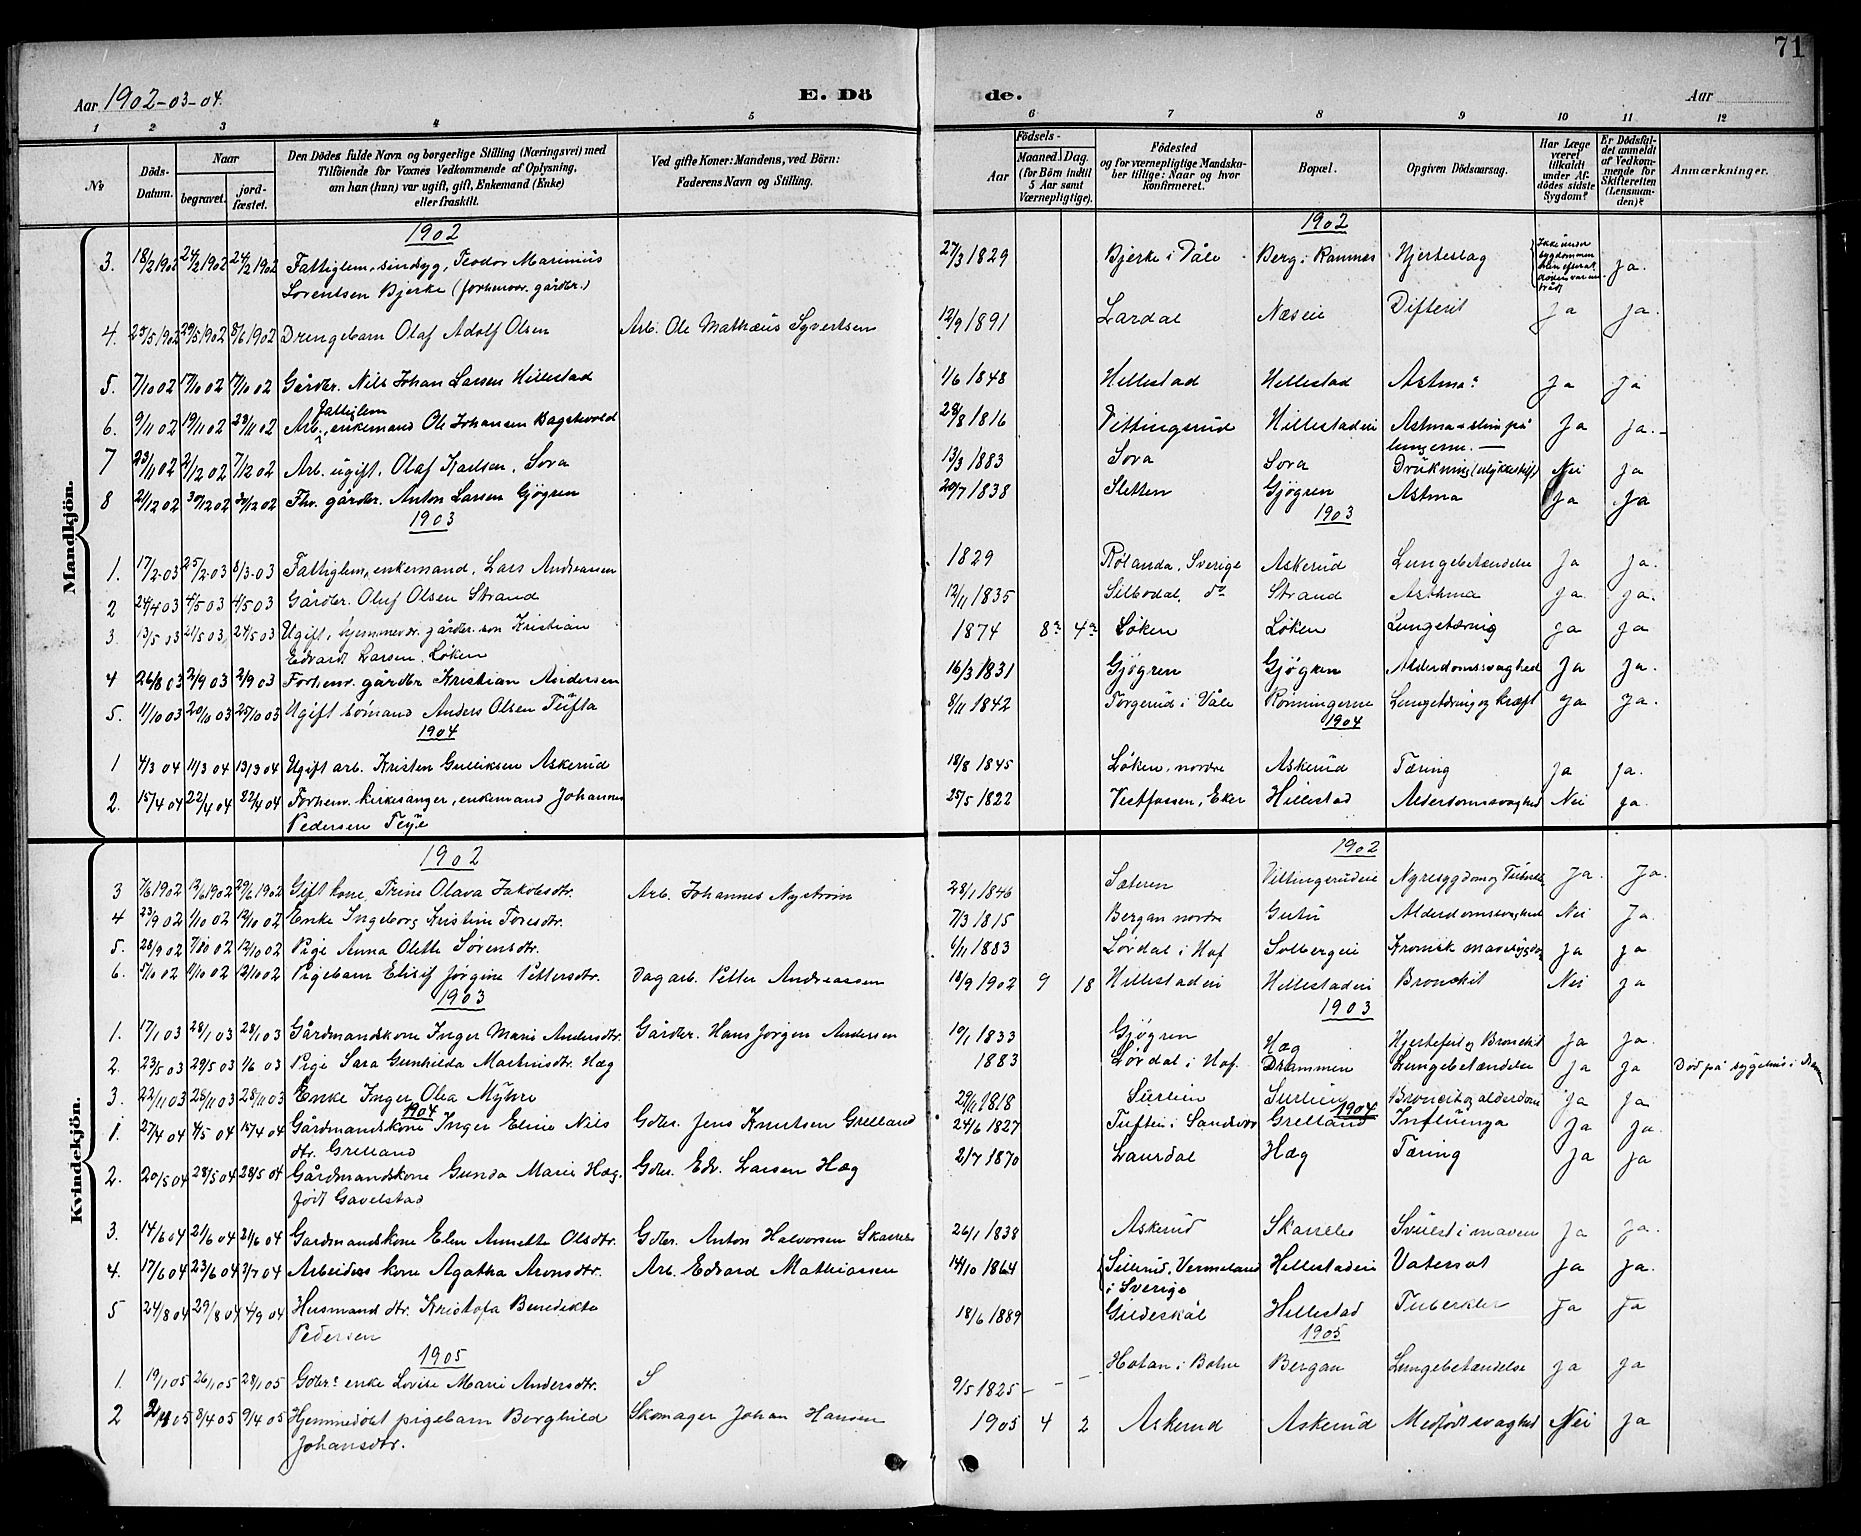 71
Aar 1902-03-04.
E. Dö
de.
Aar
1 2 3 4 5 6 7 8 9 10 11 12
No
Döds-Datum.
Naar
begravet.
jordfæstet.
Den Dödes fulde Navn og borgerlige Stilling (Næringsvei) med
Tilföiende for Voxnes Vedkommende af Oplysning,
om han (hun) var ugift, gift, Enkemand (Enke)
eller fraskilt.
Ved gifte Koner: Mandens, ved Börn:
Faderens Navn og Stilling.
Födsels-
Aar
Maaned. Dag.
(for Börn indtil
5 Aar samt
Værnepligtige).
Födested
og for værnepligtige Mandskaber tillige: Naar og hvor
konfirmeret.
Bopæl.
Opgiven Dödsaarsag.
Har Læge
været
tilkaldt
under Afdödes sidste
Sygdom?
Er Dödsfaldet anmeldt
af Vedkommende for
Skifteretten
(Lensmanden)?
Anmærkninger.
Mandkjön.
1902 1902
3. 18/2 1902 24/2 1902 24/2 1902 Fattiglem, sindsyg, Teodor Marinius 27/3 1829 Bjerke i Våle Berg i Ramnes Hjerteslag Ikke under sygdommen men efterat döden var indtrådt ja.
Lorentsen Bjerke (forhenvær. gårdbr.)
4. 25/5 1902 29/5 1902 8/6 1902 Drengebarn Olaf Adolf Olsen Arb. Ole Mathæus Syvertsen 12/9 1891 Lardal Næseie Difterit ja ja.
5. 7/10 02 17/10 02 17/10 02 Gårdbr. Nils Johan Larsen Hillestad 1/6 1848 Hillestad Hillestad Astma? ja ja
fattiglem
6. 9/11 02 19/11 02 23/11 02 Arb., enkemand Ole Johansen Bagstevold 28/8 1816 Vittingsrud Hillestadeie Astma + slim på ja ja.
lungerne.
7 23/11 02 2/12 02 7/12 02 Arb. ugift, Olaf Karlsen, Sora 13/3 1883 Sora Sora Drukning (ulykkestilf) Nei ja
8 21/12 02 30/12 02 30/12 02 Fhv. gårdbr. Anton Larsen Gjögren 20/7 1838 Sletten Gjögren Astma ja ja
1903 1903
1. 17/2-03 25/2-03 8/3-03 Fattiglem, enkemand, Lars Andreassen 1829 Rölanda, Sverige Askerud Lungebetændelse ja ja.
2 24/4 03 4/5 03 4/5 03 Gårdbr. Oluf Olsen Strand 12/11 1835 Silbodal, do Strand Asthma ja ja.
3. 13/5 03 21/5 03 24/5 03 Ugift, hjemmevær. gårdbr. søn Kristian 1874 8 4 Løken Løken Lungetæring ja ja
Edvardt Larsen, Løken
4 26/8 03 2/9 03 2/9 03 Forhenv. gårdbr Kristian Andersen 16/3 1831 Gjögren Gjögren Alderdomssvaghed ja ja.
5. 11/10 03 20/10 03 25/10 03 Ugift sømand Anders Olsen Tufta 8/11 1842 Torgerud i Våle Rönningerne Lungetæring og kræft ja ja.
1904 1904
1 4/3 04 11/3 04 13/3 04 Ugift arb. Kristen Gulliksen Askerud 18/8 1845 Løken, nordre Askerud Tæring ja ja.
2. 15/4 04 22/4 04 22/4 04 Forhenv. kirkesanger, enkemand Johannes 25/5 1822 Vestfossen, Eker Hillestad Alderdomssvaghed Nei ja.
Pedersen Teije
Kvindekjön.
1902 1902
3 7/6 1902 12/6 1902 29/6 1902 Gift kone, Trine Olava Jakobsdtr. Arb. Johannes Nyström 28/1 1846 Sæteren Vittingsrudeie Nyresygdom og Tuberkler ja. ja.
4 23/9 02 1/10 02 12/10 02 Enke Ingeborg Kristine Toresdtr. 7/3 1815 Bergan nordre Gutu Alderdomssvaghed Nei ja.
5. 28/9 02 7/10 02 12/10 02 Pige Anna Olette Sørensdtr. 6/11 1883 Lørdal i Hof Solbergeie Kronisk mavesygdom ja ja
6. 5/10 02 11/10 02 12/10 02 Pigebarn Elisif Jørgine Pettersdtr. Dagarb. Petter Andreassen 18/9 1902 9 18 Hillestadeie Hillestadeie Bronchit Nei ja
1903 1903
1. 17/1 03 28/1 03 28/1 03 Gårdmandskone Inger Marie Andersdtr. Gårdbr. Hans Jørgen Andersen 19/1 1833 Gjögren Hæg Hjertefeil og Bronchit ja ja.
2. 23/5 03 29/5 03 1/6 03 Pige Sara Gunhilda Martinisdtr. Hæg 1883 Lørdal i Hof. Drammen Lungebetændelse ja ja Død på sygehus i Dram
3. 22/11 03 28/11 03 28/11 03 Enke Inger Olea Myhre 29/11 1818 Surlein Surlein Broncit og alderdom ja ja
1904 1904
1. 27/4 04 4/5 04 15/4 04 Gårdmandskone Inger Eline Nils Gdbr. Jens Knutsen Grelland 24/6 1827 Tuften i Sandsvær Grelland Influenza ja ja.
dtr. Grelland
2. 20/5 04 28/5 04 28/5 04 Gårdmandskone Gunda Marie Hæg, Gdbr. Edv. Larsen Hæg 2/7 1870 Laurdal Hæg Tæring ja ja
født Gavelstad
3. 14/6 04 21/6 04 21/6 04 Gardmandskone Elen Annette Olsdtr. Gdbr. Anton Halvorsen Skarrebo 26/1 1838 Askerud Skarrebo Svulst i maven ja ja.
4. 17/6 04 23/6 04 3/7 04 Arbeiders kone Agatha Aronsdtr. Arb. Edvard Mathiassen 14/10 1864 Sillerud, Vermeland Hillestadeie Vatersot ja ja.
i Sverige
5 24/8 04 29/8 04 4/9 04 Husmand dtr. Kristofa Benedikte 18/6 1889 Gildeskål Hillestad Tuberkler ja ja
Pedersen
1905 1905
1. 19/1 05 26/1 05 28/1 05 Gdbrs enke Lovise Marie Andersdtr. 9/5 1825 - - - Hotan i Botne Bergan Lungebetændelse ja ja
2 2/4 05 8/4 05 9/4 05 Hjemmedøbt pigebarn Borghild Skomager Johan Hansen 1905 4 2 Askerud Askerud Medfødt svaghed Nei ja
Johansdtr.